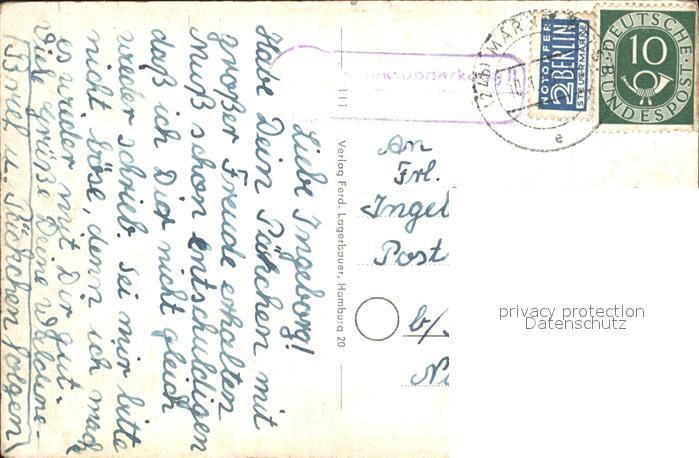 Liebe Ingeborg!
Habe Dein Päkchen mit
großer Freude erhalten
Muß schon entschuldigen
daß ich Dir nicht gleich
wieder schrieb. Sei mir bitte
nicht böse, denn ich mach
es wieder mit Dir gut.
Viele Grüße Deine
(Brief u. Päckchen folgen)
111
Verlag Ferd. Lagerbauer, Hamburg 20
An
Frl.
Ingel
Post
b/
Ni
NOTOPFER
2 BERLIN
STEUERMARKE
DEUTSCHE
10
BUNDESPOST
(22b) MAR
e
privacy protection
Datenschutz